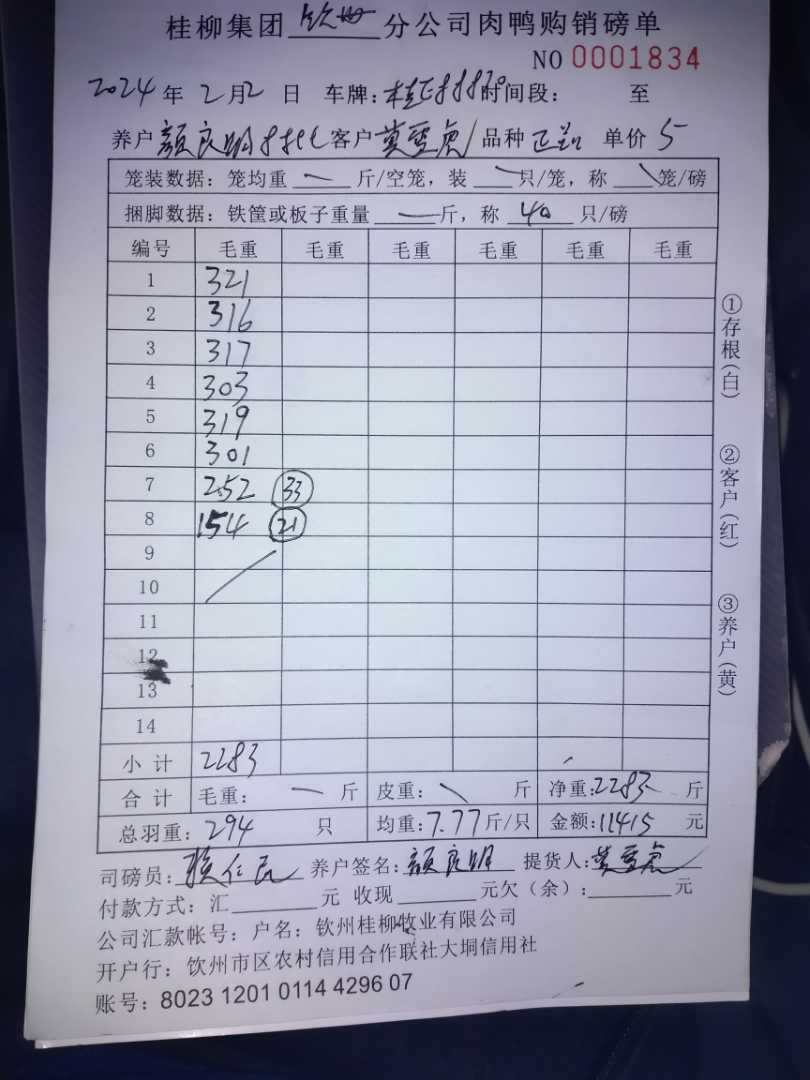 桂柳集团 钦州 分公司肉鸭购销磅单
NO 0001834
2024 年 2 月 2 日 车牌: 时间段: 至
养户 颜良明 客户 品种 正 单价 5
笼装数据: 笼均重 — 斤/空笼, 装 只/笼, 称 笼/磅
捆脚数据: 铁筐或板子重量 — 斤, 称 40 只/磅
编号 毛重 毛重 毛重 毛重 毛重 毛重
1 321
2 316
3 317
4 303
5 319
6 301
7 252 33
8 154 21
9
10
11
12
13
14
小计 2283
合计 毛重: — 斤 皮重: 斤 净重: 2283 斤
总羽重: 294 只 均重: 7.77 斤/只 金额: 11415 元
司磅员: 养户签名: 颜良明 提货人:
付款方式: 汇 元 收现 元欠(余): 元
公司汇款帐号: 户名: 钦州桂柳牧业有限公司
开户行: 钦州市区农村信用合作联社大垌信用社
账号: 8023 1201 0114 4296 07
①存根(白)
②客户(红)
③养户(黄)